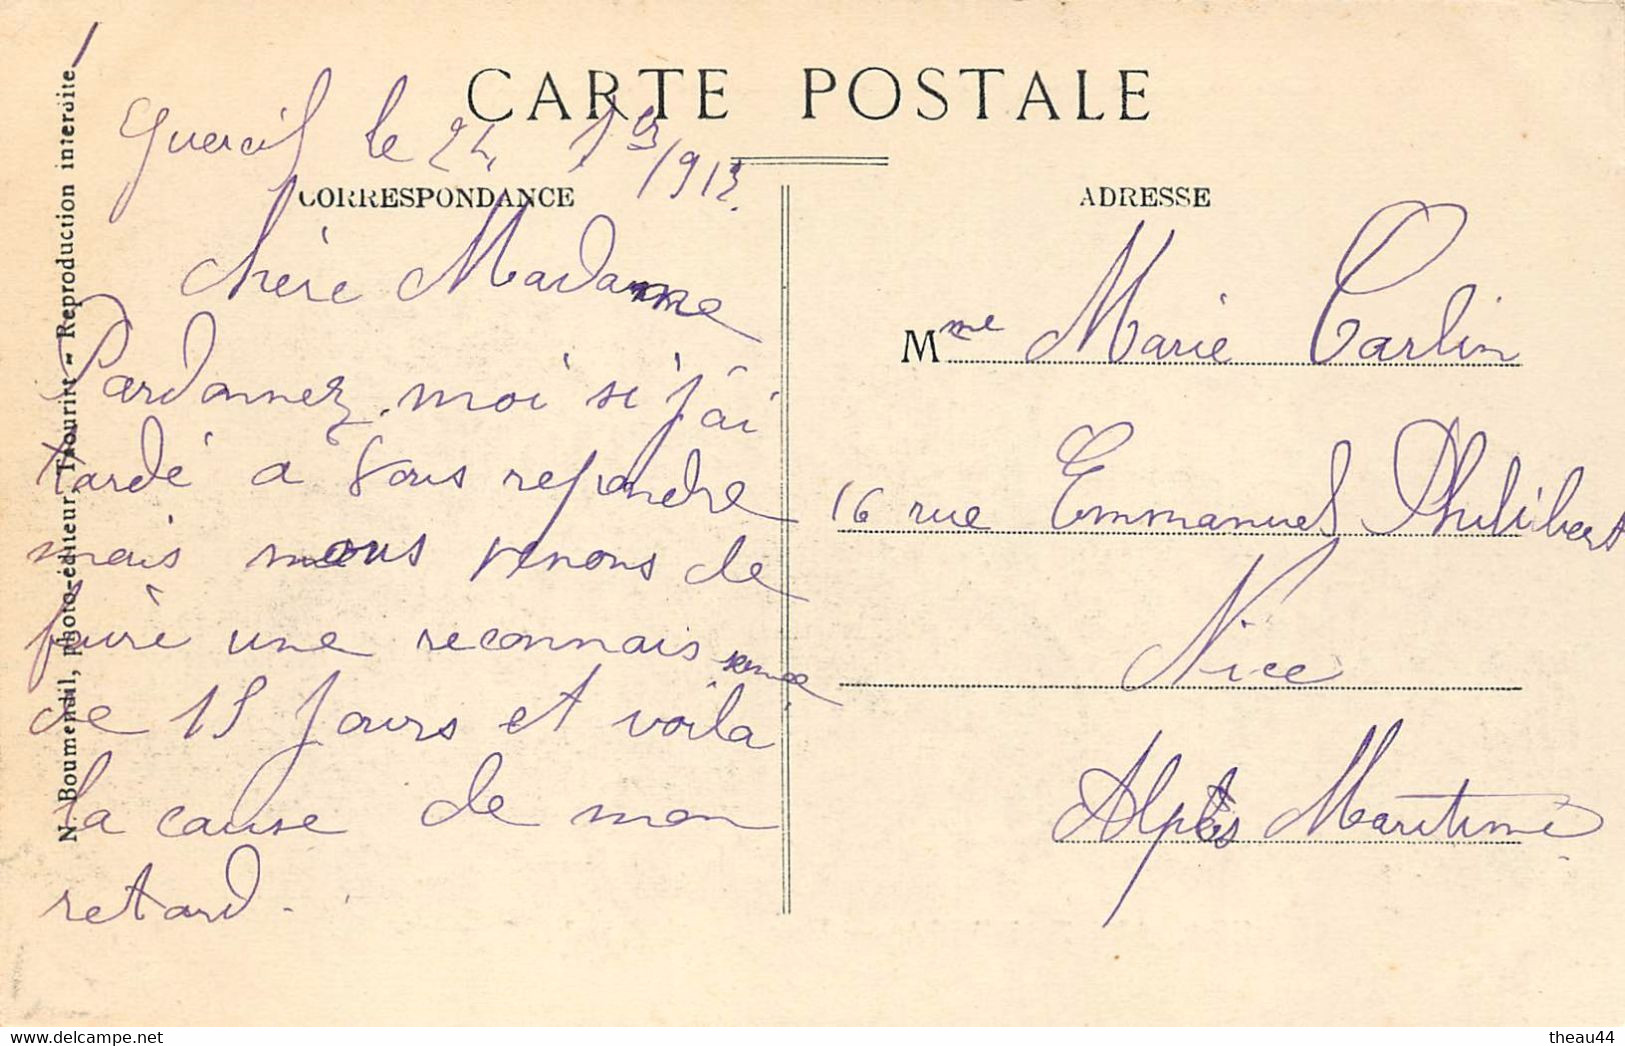 CARTE POSTALE
Guercif le 24, 1913.
CORRESPONDANCE
chère Madame
Pardonnez. moi si j'ai
tardé a vous repondre
mais nous venons de
faire une reconnaissance
de 15 jours et voila
la cause de mon
retard.
ADRESSE
Mme Marie Carlin
16 rue Emmanuel Philibert
Nice
Alpes Maritime
N. Boumendil, photo-éditeur, Taourirt - Reproduction interdite
delcampe.net
theau44